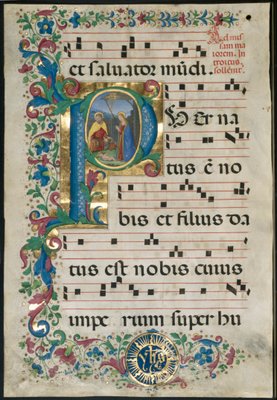 Ad mis
sam ma
iorem. In
troitus
sollēnit.
et saluator mūdi.
PUer na
tus ē no
bis et filius da
tus est nobis cuius
impe rium super hu
yhs